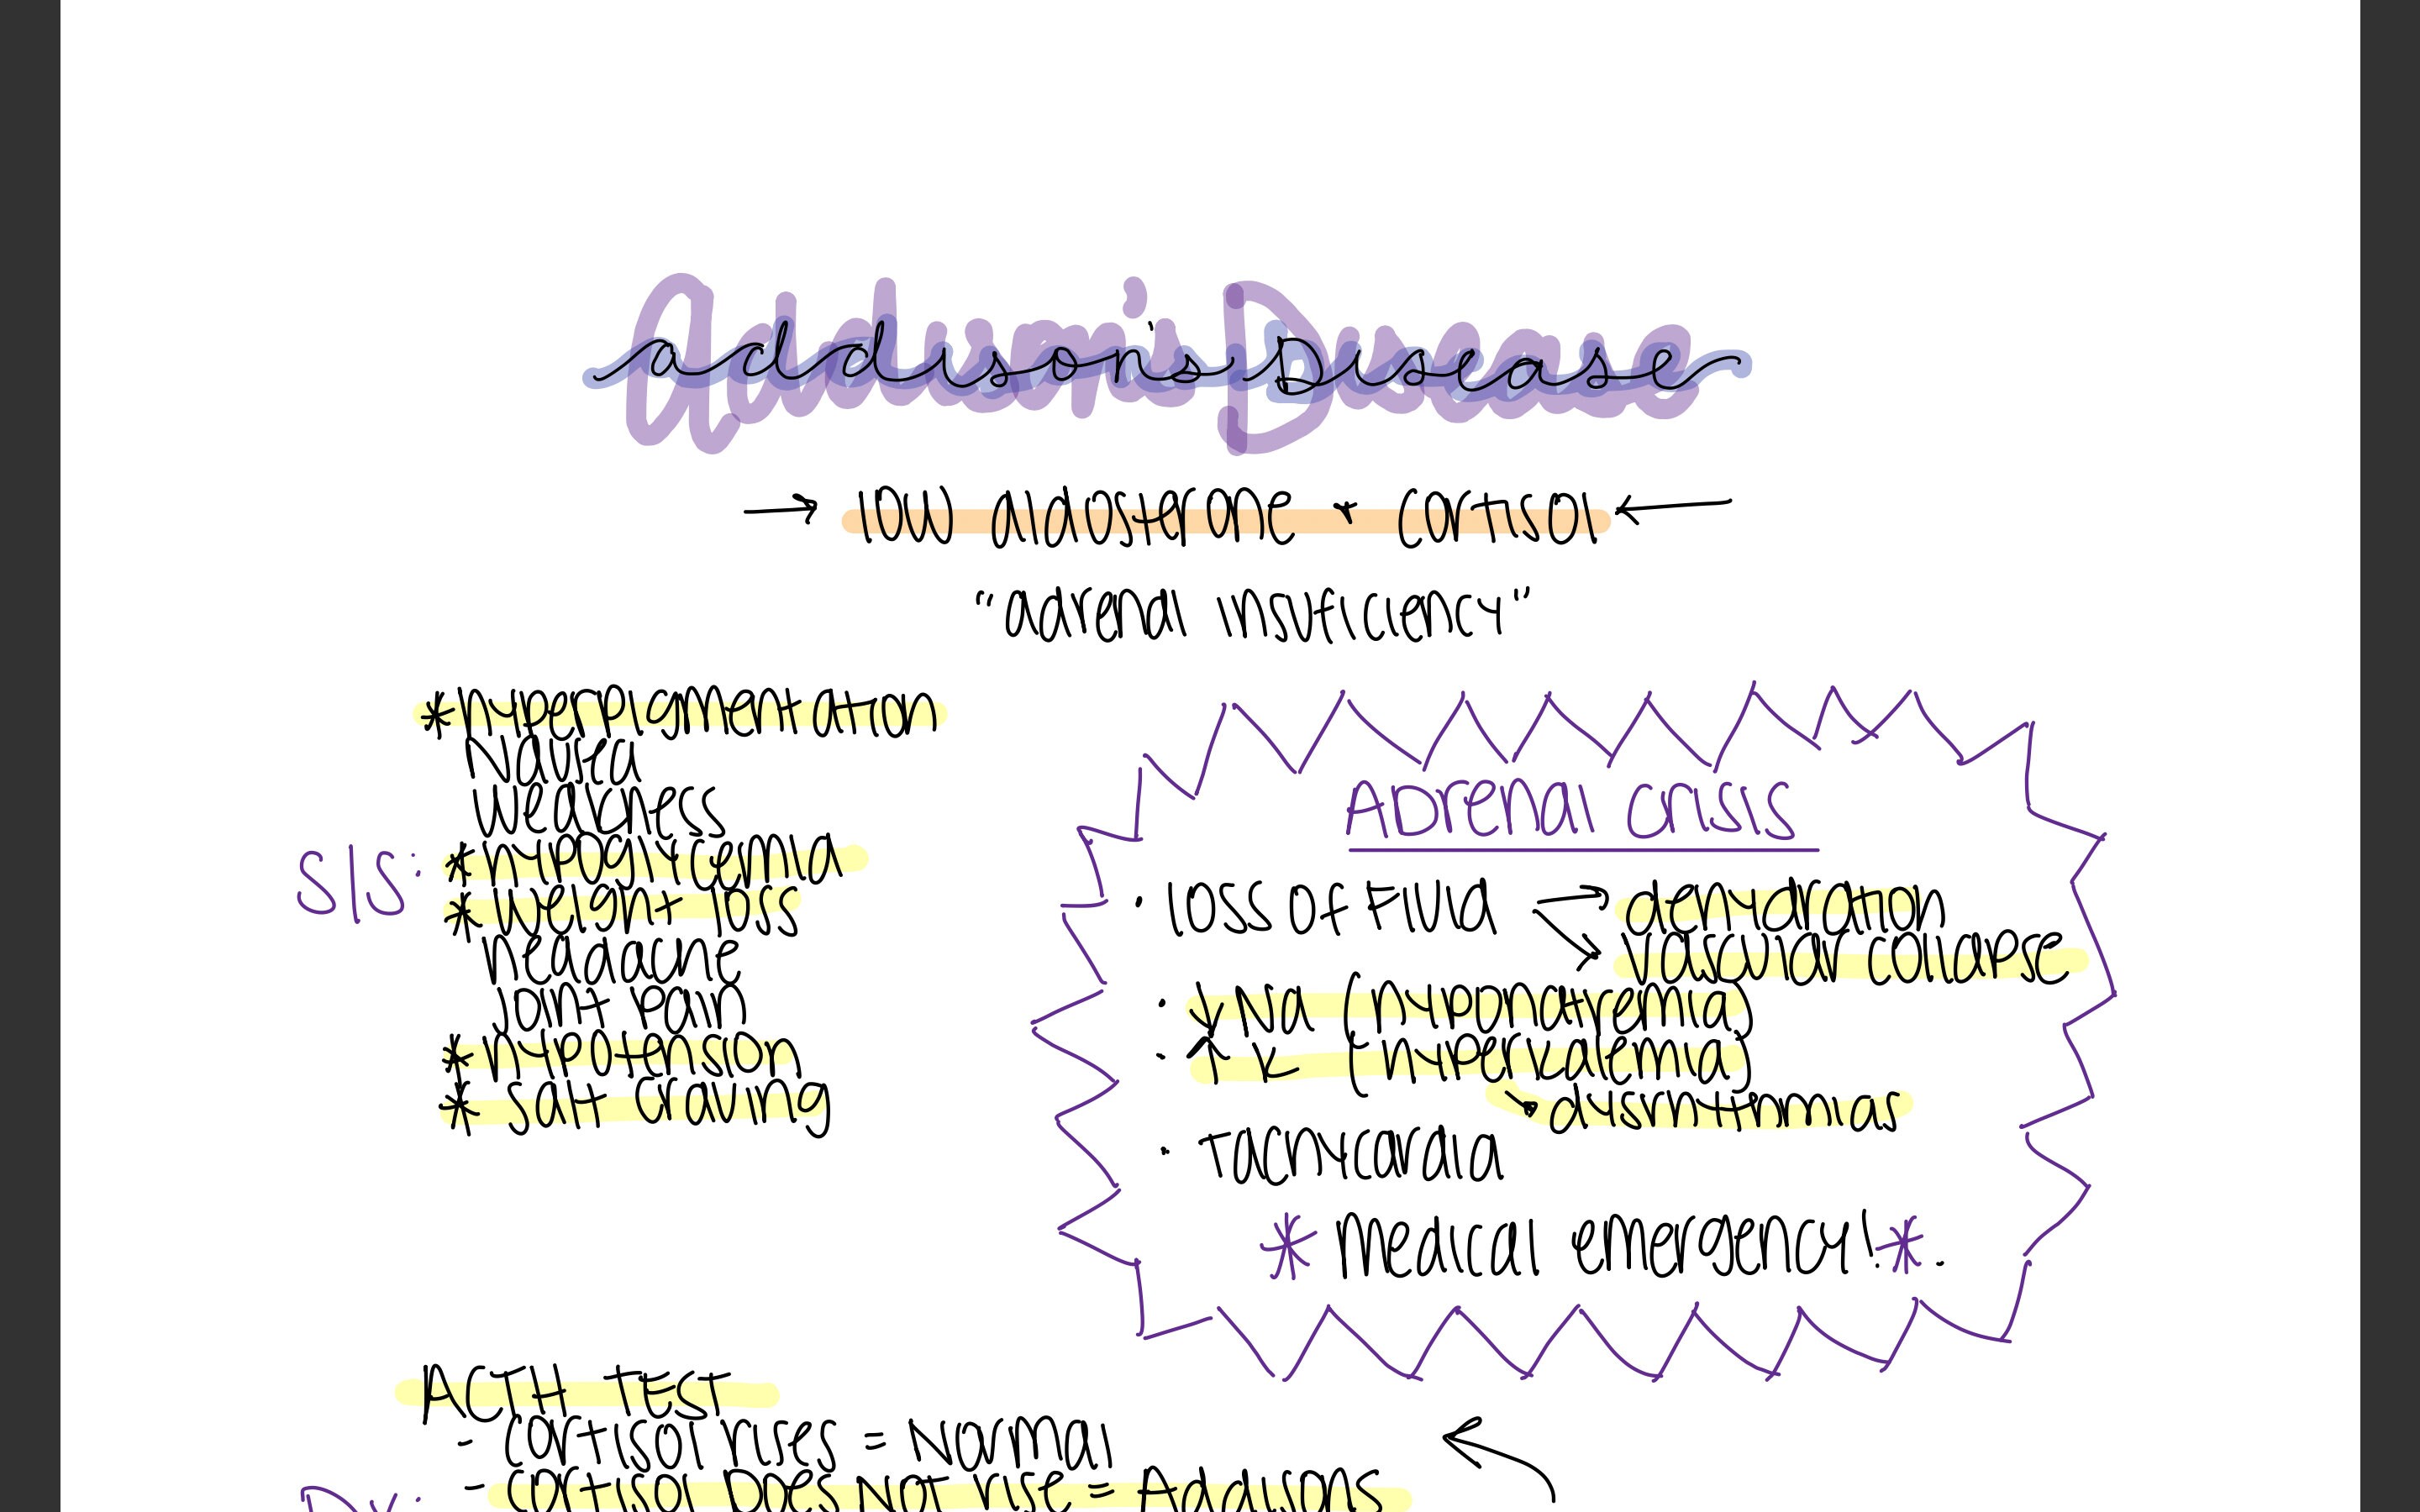 Addison's Disease
→ low aldostrone + cortisol ←
"adrenal insuficiency"
* hyperpigmentation
Nausea
Weakness
S/S: * hypoglycemia
* weight loss
headache
joint pain
* hypotension
* salt craving
Adrenal crisis
· loss of fluid → dehydration
→ vascular collapse
· ↓ Na (hyponatremia)
· ↑ K (hyperkalemia)
→ dysrhythmias
· Tachycardia
* Medical emergency! *
ACTH Test
- Cortisol rises = Normal
- Cortisol Does Not rise = Addisons
Dx: